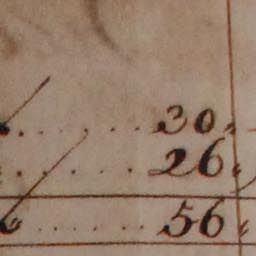 30.
26.
56.